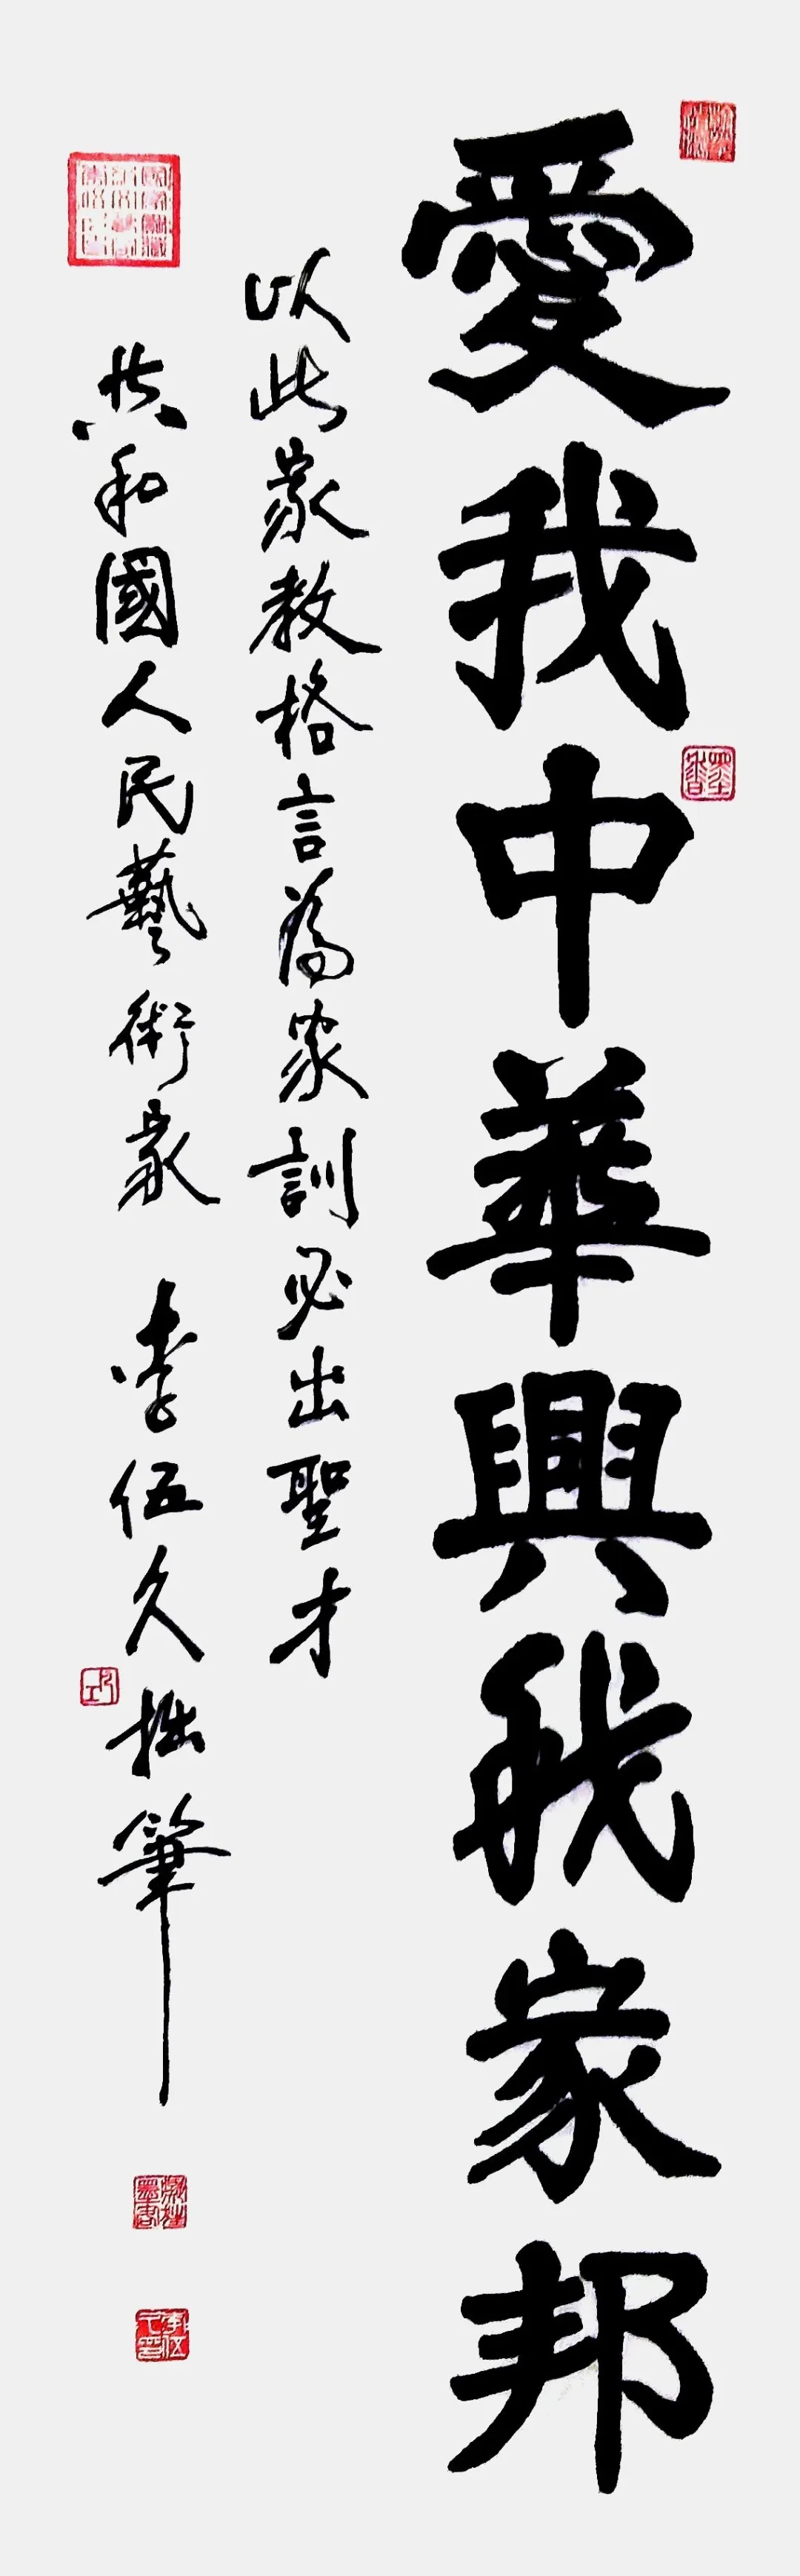 愛我中華興我家邦
以此家教格言為家訓必出聖才
共和國人民藝術家 李伍久拙筆
墨香